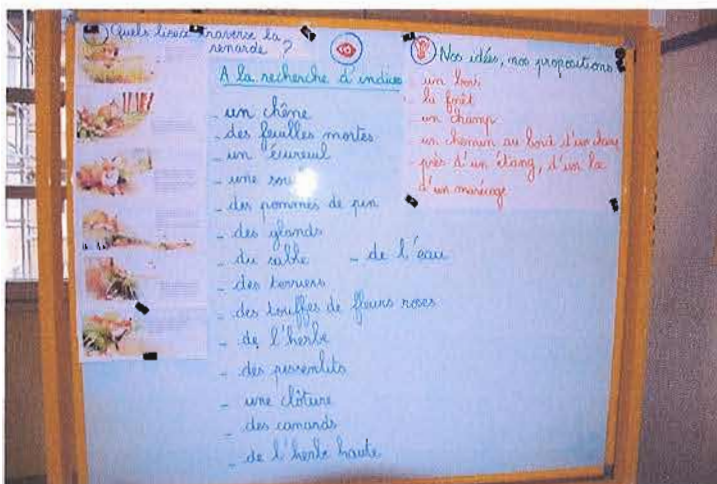 Quels lieux traverse la
renarde ?
A la recherche d'indices
- un chêne
- des feuilles mortes
- un écureuil
- une
- des pommes de pin
- des glands
- du sable - de l'eau
- des terriers
- des touffes de fleurs roses
- de l'herbe
- des pissenlits
- une clôture
- des canards
- de l'herbe haute
Nos idées, nos propositions
- un bois
- la forêt
- un champ
- un chemin au bord d'un champ
- près d'un étang, d'un lac
d'un marécage